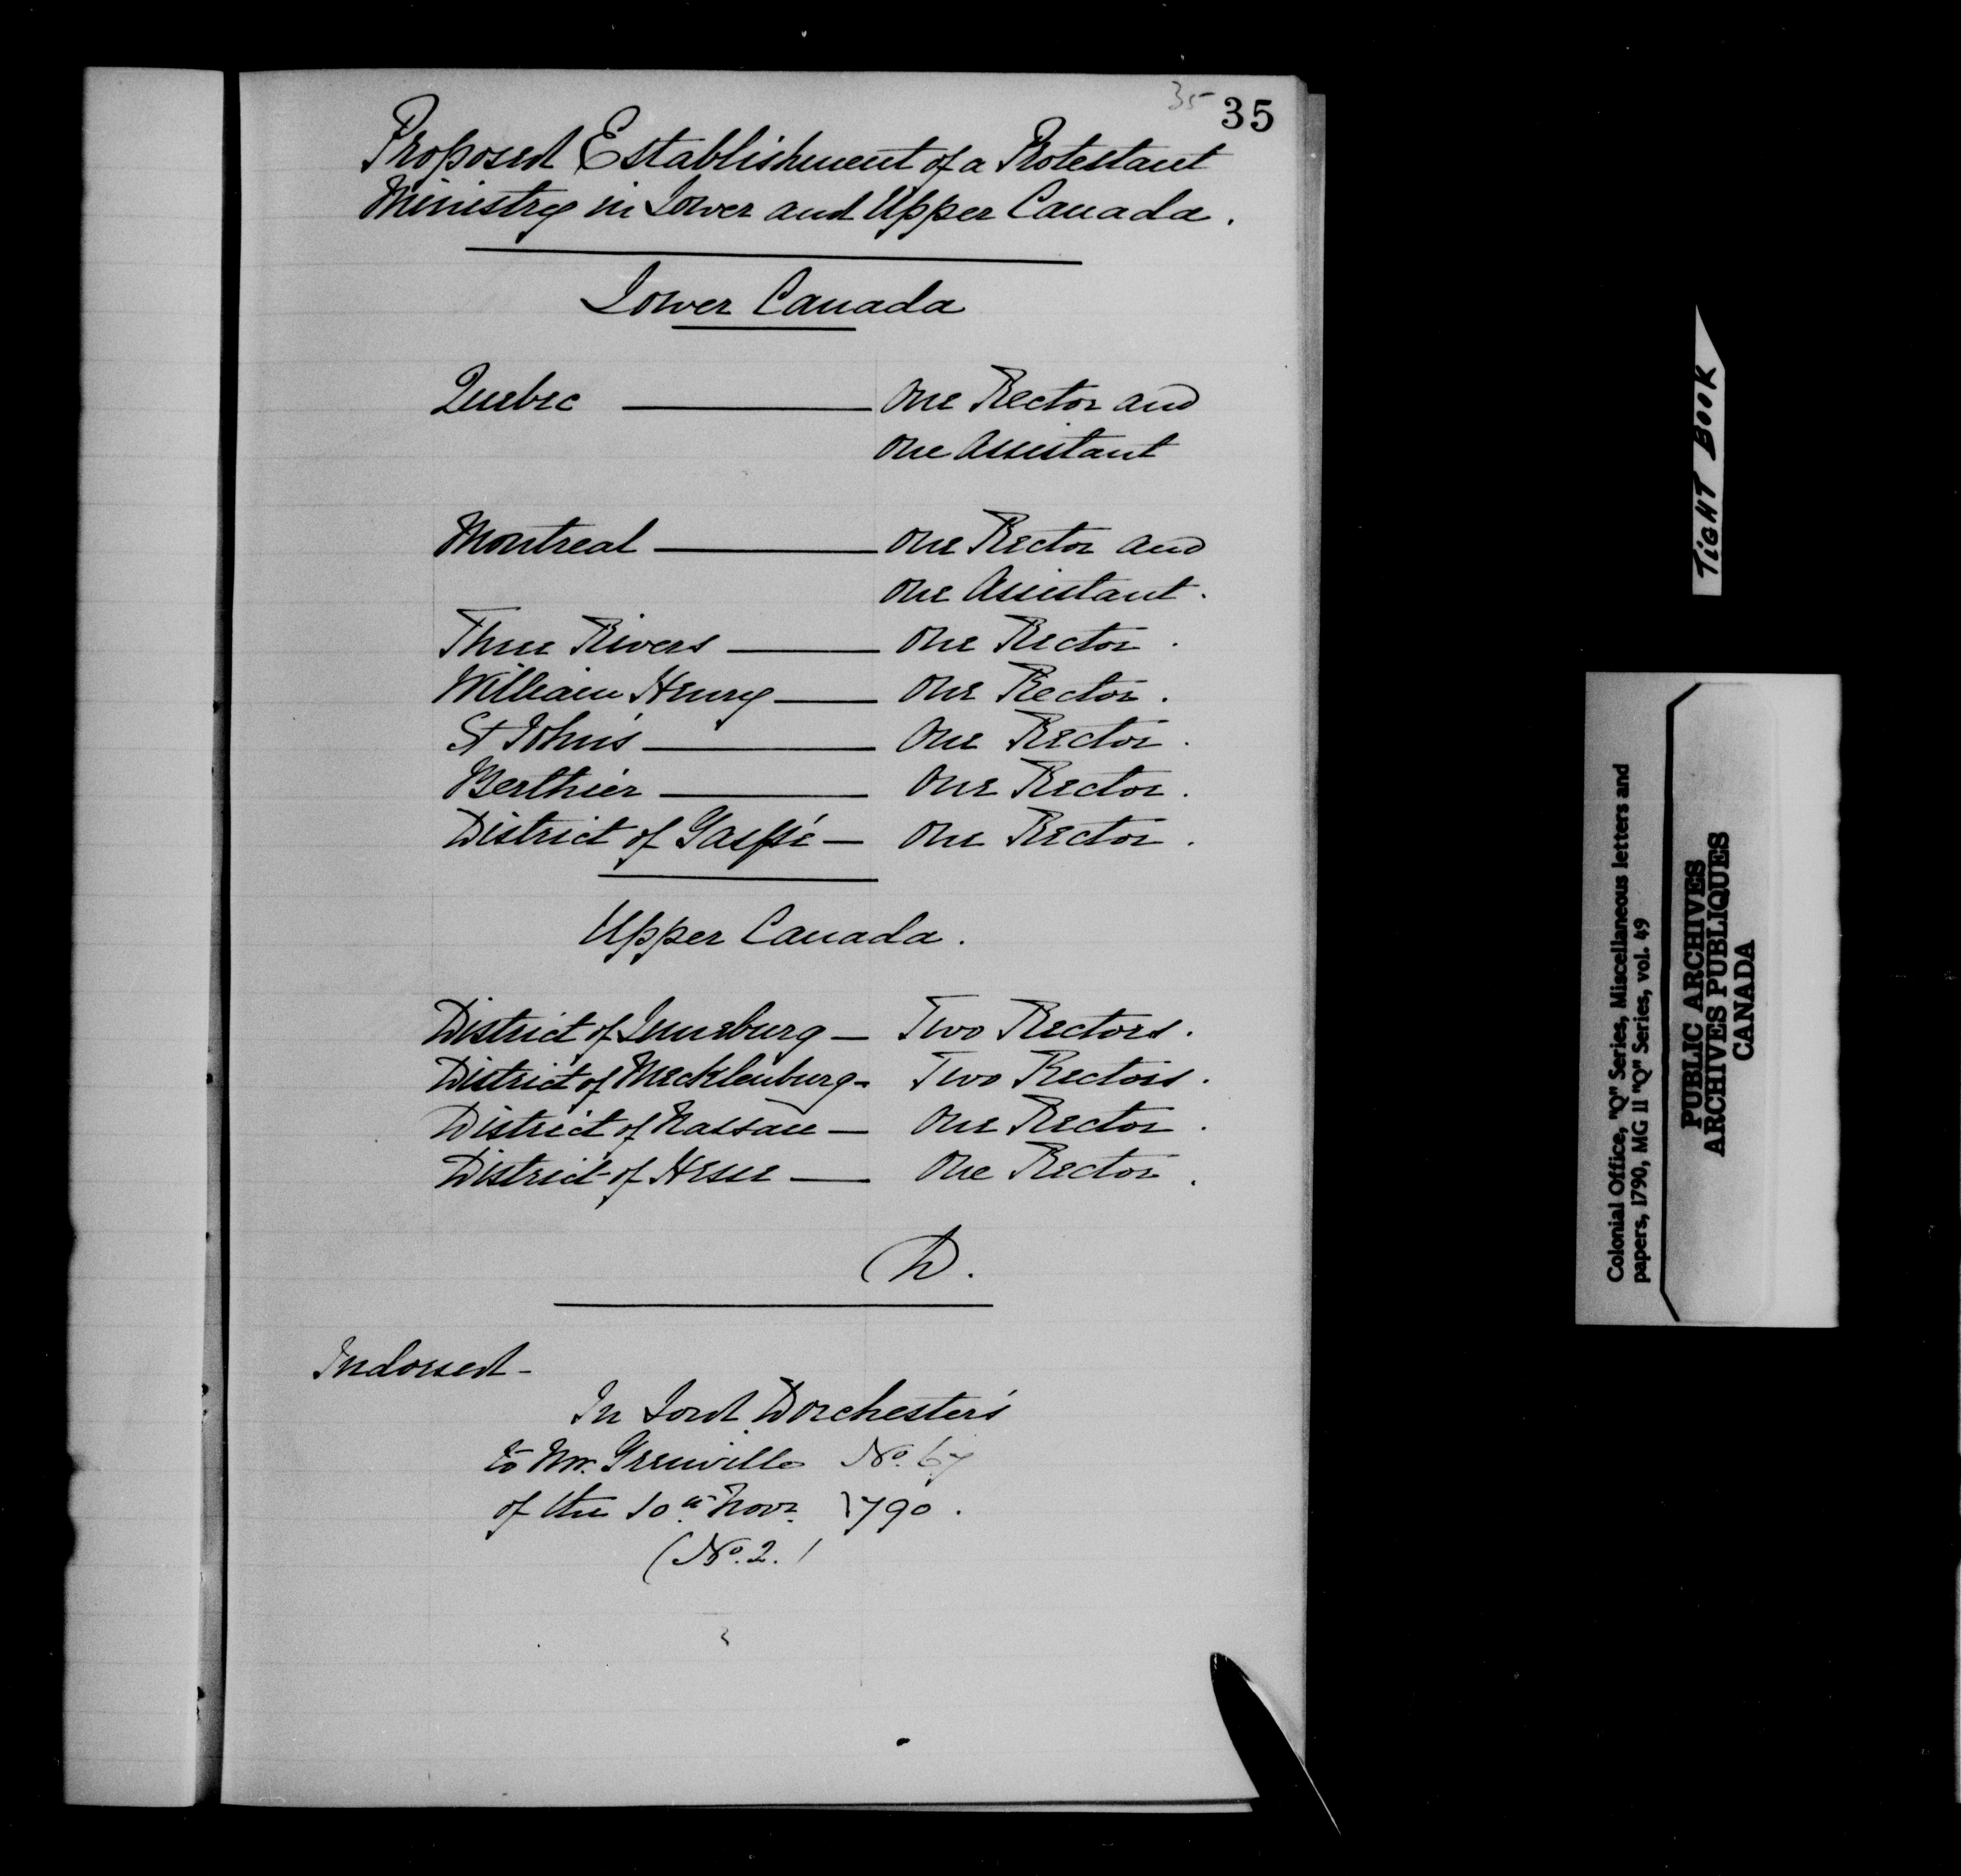 35 35
Proposed Establishment of a Protestant
Ministry in Lower and Upper Canada.
Lower Canada
Quebec — One Rector and
One Assistant
Montreal — One Rector and
One Assistant.
Three Rivers — One Rector.
William Henry — One Rector.
St John's — One Rector.
Berthier — One Rector.
District of Gaspé — One Rector.
Upper Canada.
District of Luneburg — Two Rectors.
District of Mecklenburg - Two Rectors.
District of Nassau — One Rector.
District of Hesse — One Rector.
D.
Indorsed -
In Lord Dorchester's
to Mr. Grenville No. 67
of the 10th Novr. 1790.
(No. 2.)
TIGHT BOOK
Colonial Office, "Q" Series, Miscellaneous letters and
papers, 1790, MG 11 "Q" Series, vol. 49
PUBLIC ARCHIVES
ARCHIVES PUBLIQUES
CANADA